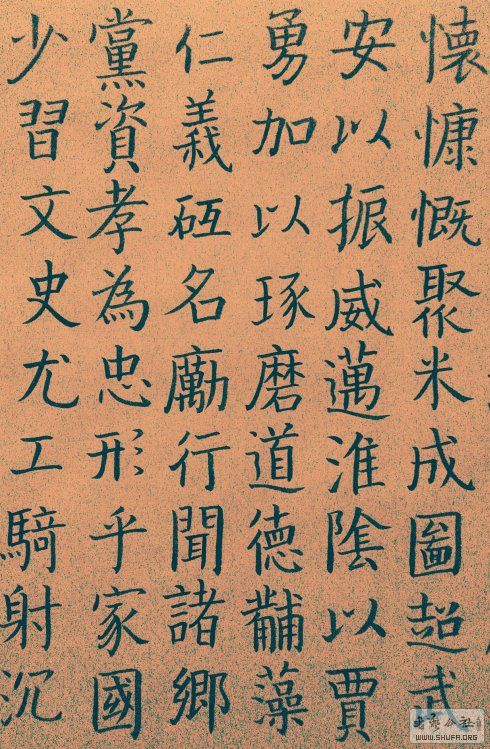 懷慷慨聚米成圖超武
安以振威邁淮陰以賈
勇加以琢磨道德黼藻
仁義砥名勵行聞諸鄉
黨資孝為忠形乎家國
少習文史尤工騎射沉
書法公社
WWW.SHUFA.ORG